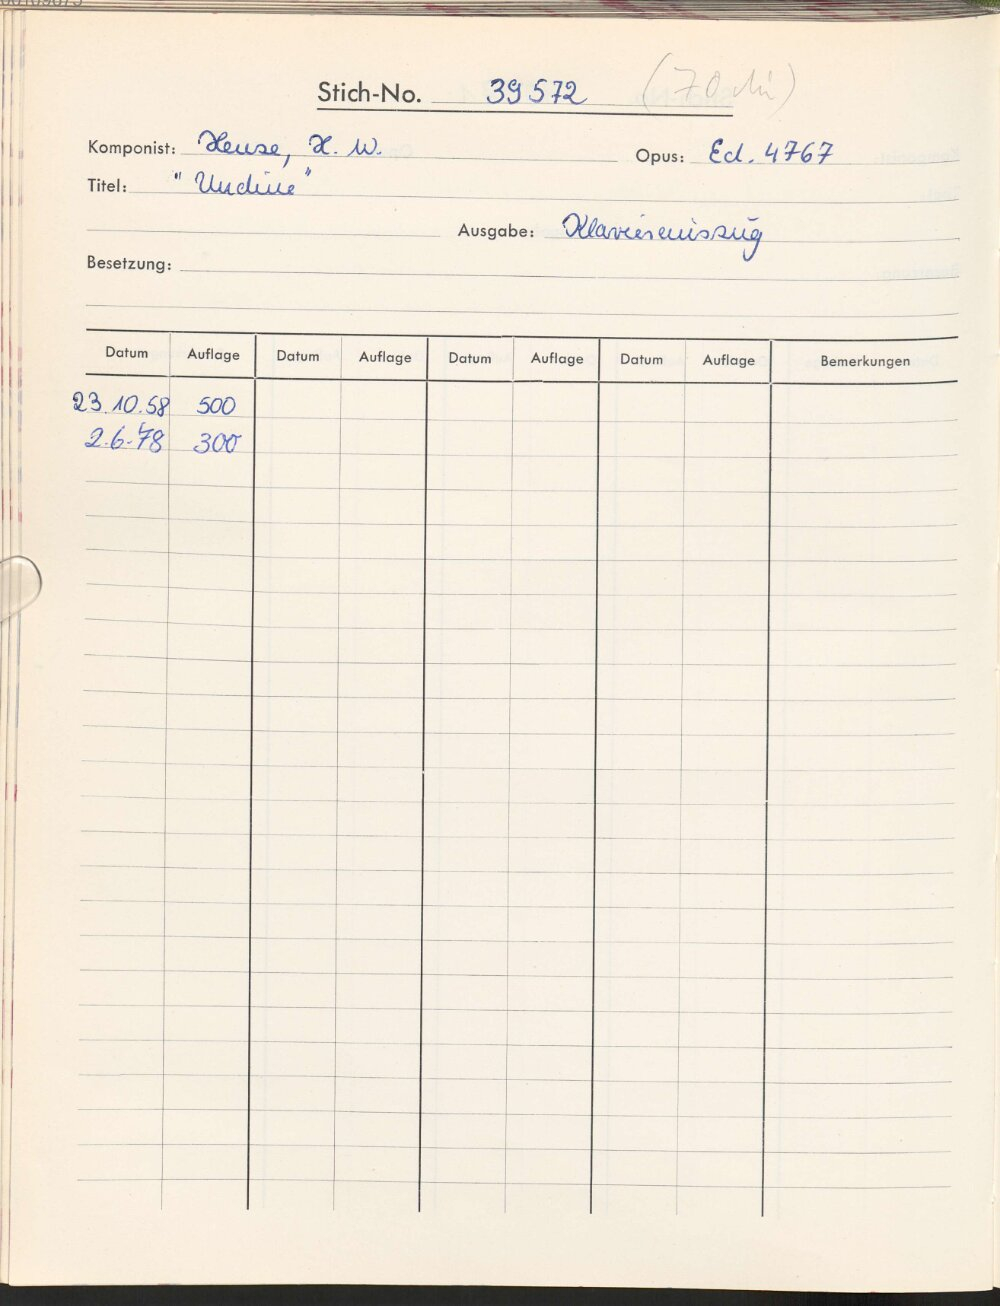 Stich-No. 39572
Komponist: Henze, H. W. Opus: Ed. 4767
Titel: "Undine"
Ausgabe: Klavierauszug
Besetzung:
Datum Auflage Datum Auflage Datum Auflage Datum Auflage Bemerkungen
23.10.58 500
2.6.78 300